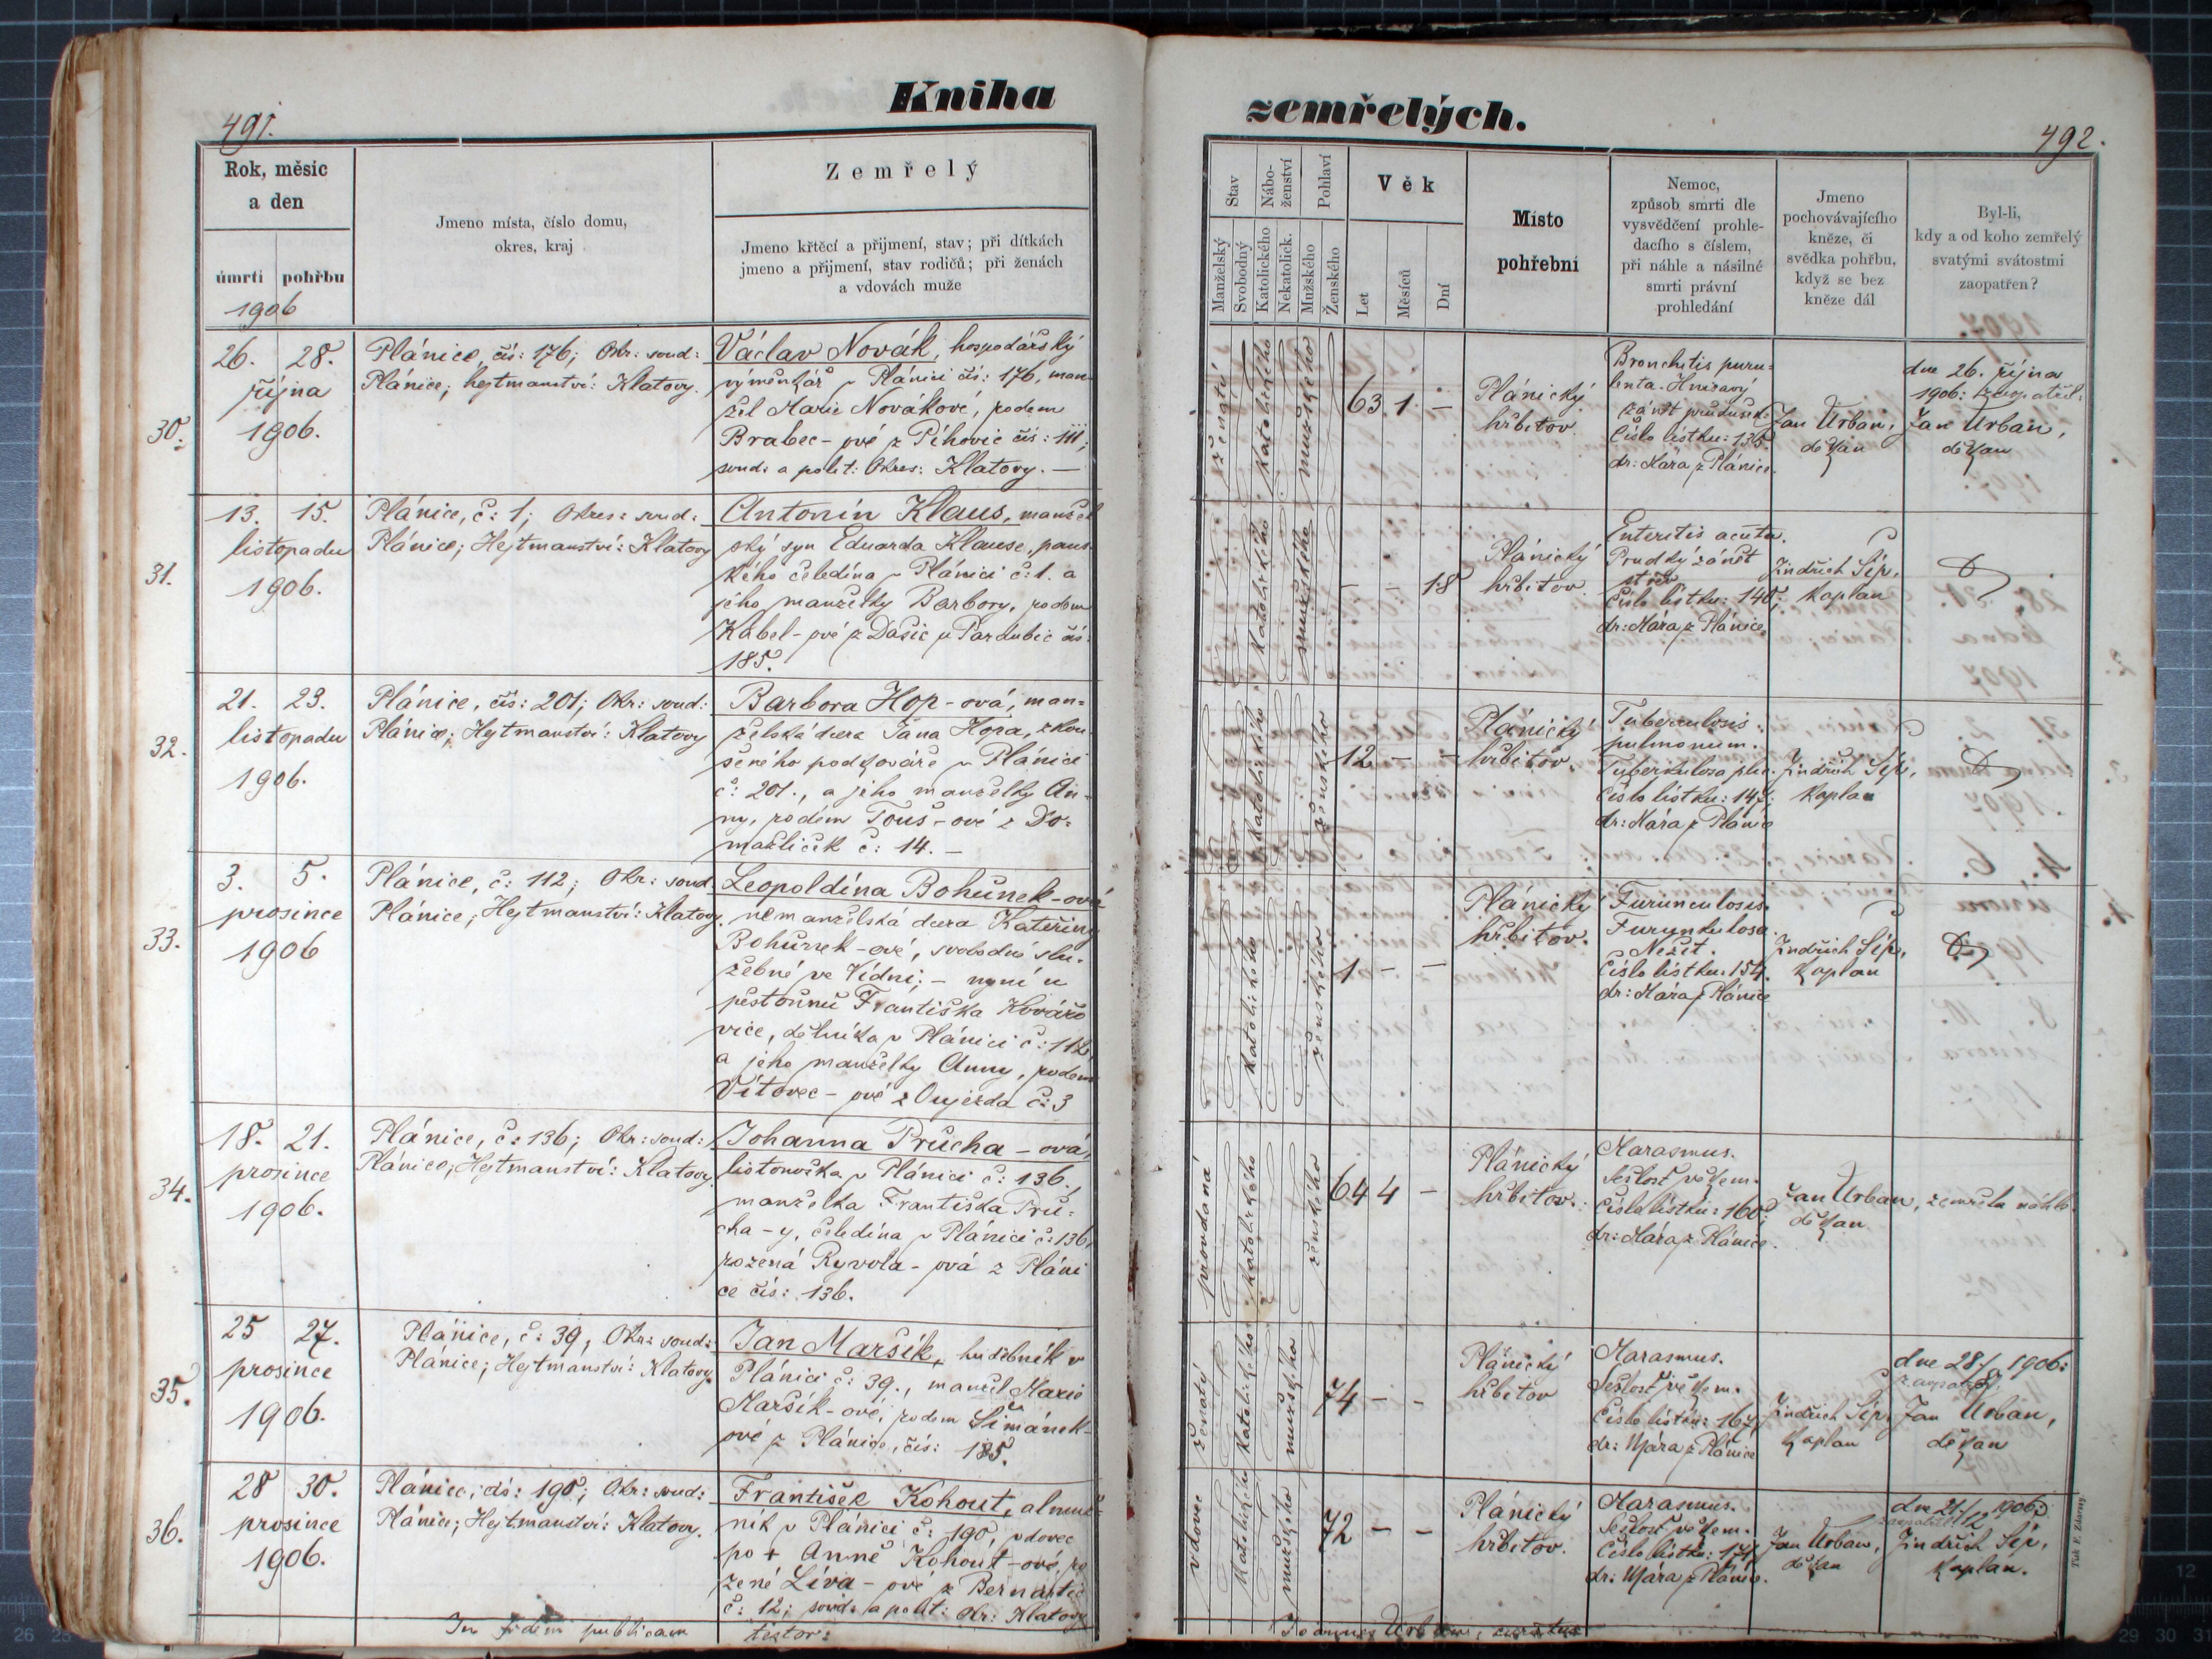 Kniha zemřelých.
491.
492.
Rok, měsíc
a den
úmrtí pohřbu
1906
Jmeno místa, číslo domu,
okres, kraj
Zemřelý
Jmeno křtěcí a přijmení, stav; při dítkách
jmeno a přijmení, stav rodičů; při ženách
a vdovách muže
Stav
Manželský
Svobodný
Nábo-
ženství
Katolického
Nekatolick.
Pohlaví
Mužského
Ženského
Věk
Let
Měsíců
Dní
Místo
pohřební
Nemoc,
způsob smrti dle
vysvědčení prohle-
dacího s číslem,
při náhle a násilné
smrti právní
prohledání
Jmeno
pochovávajícího
kněze, či
svědka pohřbu,
když se bez
kněze dál
Byl-li,
kdy a od koho zemřelý
svatými svátostmi
zaopatřen?
30.
26. 28.
října
1906.
Plánice, čís: 176; Okr: soud:
Plánice; hejtmanství: Klatovy.
Václav Novák, hospodářský
výměnkář v Plánici čís: 176, man-
žel Marie Novákové, rodem
Brabec-ové z Píhovic čís: 111;
soud: a polit: Okres: Klatovy. —
ženatý
Katolického
mužského
63 1 —
Plánický
hřbitov.
Bronchitis puru-
lenta. Hnisavý
zánět průdušek.
Číslo lístku: 135
dr: Mára z Plánice.
Jan Urban,
děkan
dne 26. října
1906: zaopatřil:
Jan Urban,
děkan
31.
13. 15.
listopadu
1906.
Plánice, č: 1; Okres: soud:
Plánice; Hejtmanství: Klatovy
Antonín Klaus, manžel
ský syn Eduarda Klause, pans-
kého čeledína v Plánici č: 1. a
jeho manželky Barbory, rodem
Kabel-ové z Dašic u Pardubic čís:
185.
Katolického
mužského
- - 18
Plánický
hřbitov.
Enteritis acuta.
Prudký zánět
střev
Číslo lístku: 140;
dr: Mára z Plánice
Jindřich Síp,
Kaplan
32.
21. 23.
listopadu
1906.
Plánice, čís: 201; Okr: soud:
Plánice; Hejtmanství: Klatovy
Barbora Hop-ová, man-
želská dcera Jana Hopa, zkou-
šeného podkováře v Plánici
č: 201., a jeho manželky An-
ny, rodem Touš-ové z Do-
mažliček č: 14. —
Katolického
ženského
12 - -
Plánický
hřbitov.
Tuberculosis
pulmonum.
Tuberkulosa plic.
Číslo lístku: 147;
dr: Mára z Plánice
Jindřich Síp,
Kaplan
33.
3. 5.
prosince
1906
Plánice, č: 112; Okr: soud.
Plánice; Hejtmanství: Klatovy.
Leopoldína Bohunek-ová
nemanželská dcera Kateřiny
Bohunek-ové, svobodné slu-
žebné ve Vídni; — nyní u
pěstounů Františka Kováŕo
vice, dělníka v Plánici č: 112
a jeho manželky Anny, rodem
Vítovec-ové z Oujezda č: 3
Katolického
ženského
1 - -
Plánický
hřbitov.
Furunculosis.
Furunkulosa.
Nežit.
Číslo lístku: 154.
dr: Mára z Plánice
Jindřich Síp,
Kaplan
34.
18. 21.
prosince
1906.
Plánice, č: 136; Okr: soud:
Plánice; Hejtmanství: Klatovy.
Johanna Průcha-ová,
listonoška v Plánici č: 136.,
manželka Františka Prů-
cha-y, čeledína v Plánici č: 136,
rozená Ryvola-ová z Pláni
ce čís: 136.
provdaná
Katolického
ženského
64 4 -
Plánický
hřbitov.
Marasmus.
Sešlosť věkem.
Číslo lístku: 160;
dr: Mára z Plánice.
Jan Urban,
děkan
zemřela náhle.
35.
25 27.
prosince
1906.
Plánice, č: 39; Okr: soud:
Plánice; Hejtmanství: Klatovy.
Jan Maršík, hudebník v
Plánici č: 39., manžel Marie
Maršík-ové, rodem Šimánek-
ové z Plánice, čís: 185.
ženatý
Katolického
mužského
74 - -
Plánický
hřbitov
Marasmus.
Sešlosť věkem.
Číslo lístku: 167,
dr: Mára z Plánice
Jindřich Síp,
Kaplan
dne 28/ 1906:
zaopatřil:
Jan Urban,
děkan
36.
28 30.
prosince
1906.
Plánice, čís: 190; Okr: soud:
Plánice; Hejtmanství: Klatovy.
František Kohout, almuž-
ník v Plánici č: 190, vdovec
po + Anně Kohout-ové, ro
zené Líva-ové z Bernartic
č: 12; soud: a polit: Okr: Klatovy
vdovec
Katolického
mužského
72 - -
Plánický
hřbitov.
Marasmus.
Sešlosť věkem.
Číslo lístku: 171,
dr: Mára z Plánice.
Jan Urban,
děkan
dne 21/12 1906
zaopatřil:
Jindřich Síp,
Kaplan.
In fidem publicam testor:
Joannes Urban, curatus
Tisk F. Zdarný